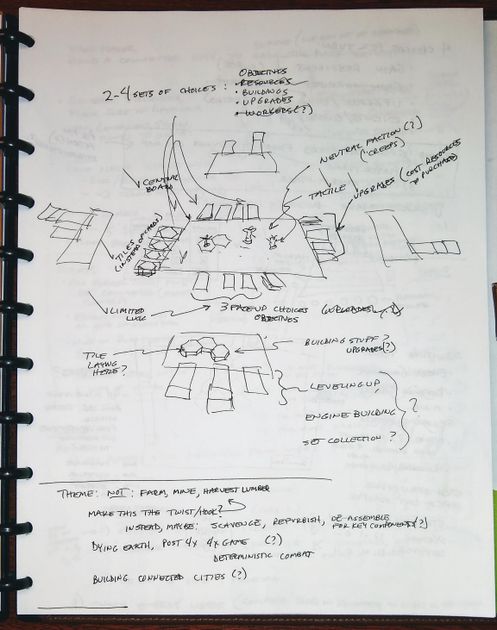 OBJECTIVES
2-4 SETS OF CHOICES : • RESOURCES
• BUILDINGS
• UPGRADES
• WORKERS(?)
NEUTRAL FACTION (?)
("CREEPS)
CENTRAL
BOARD
TACTILE
UPGRADES (COST RESOURCES
TO PURCHASE)
TILES
(INSTEAD OF CARDS)
LIMITED
LUCK
3 FACE UP CHOICES (UPGRADES
OBJECTIVES
TILE
LAYING
HERE?
BUILDING STUFF?
UPGRADES(?)
LEVELING UP,
ENGINE BUILDING
SET COLLECTION ?
?
THEME: NOT: FARM, MINE, HARVEST LUMBER
MAKE THIS THE TWIST/HOOK?
INSTEAD, MAYBE: SCAVENGE, REFURBISH, DE-ASSEMBLE
FOR KEY COMPONENTS(?)
DYING EARTH, POST 4X 4X GAME (?)
DETERMINISTIC COMBAT
BUILDING CONNECTED CITIES (?)